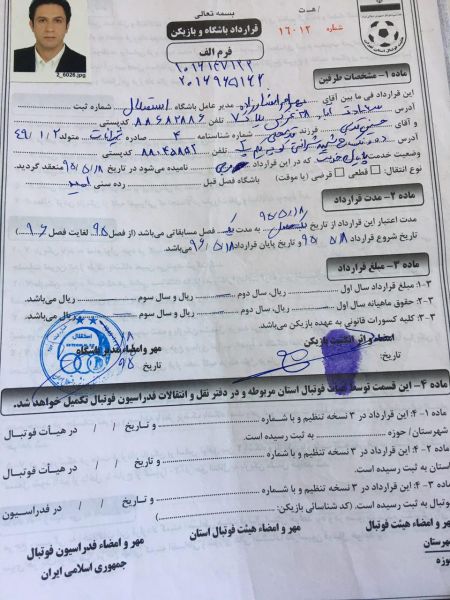 بسمه تعالی
قرارداد باشگاه و بازیکن
فرم الف
شماره ۱۶۰۱۲
2_6026.jpg
ماده ۱- مشخصات طرفین
این قرارداد فی ما بین آقای مدیر عامل باشگاه استقلال شماره ثبت
آدرس تلفن ۸۸۶۸۲۸۸۶ کدپستی
و آقای فرزند شماره شناسنامه ۴ صادره متولد ۴۹/۱/۲
آدرس تلفن کدپستی
وضعیت خدمت که در این قرارداد نامیده می‌شود در تاریخ ۹۵/۵/۱۸ منعقد گردید.
نوع انتقال: قطعی قرضی (یا موقت) باشگاه فصل قبل رده سنی امید
ماده ۲- مدت قرارداد
۹۵/۵/۱۸
مدت اعتبار این قرارداد از تاریخ به مدت یک فصل مسابقاتی می‌باشد (از فصل ۹۵ لغایت فصل ۹۶)
تاریخ شروع قرارداد ۹۵/۵/۱۸ و تاریخ پایان قرارداد ۹۶/۵/۱۸ می‌باشد.
ماده ۳- مبلغ قرارداد
۱-۳: مبلغ قرارداد سال اول ریال، سال دوم ریال و سال سوم ریال می‌باشد.
۲-۳: حقوق ماهیانه سال اول ریال، سال دوم ریال و سال سوم ریال می‌باشد.
۳-۳: کلیه کسورات قانونی به عهده بازیکن می‌باشد.
امضاء و اثر انگشت بازیکن
مهر و امضاء مدیر باشگاه
تاریخ:
تاریخ ۹۵
استقلال
ماده ۴- این قسمت توسط هیأت فوتبال استان مربوطه و در دفتر نقل و انتقالات فدراسیون فوتبال تکمیل خواهد شد.
۱-۴: این قرارداد در ۳ نسخه تنظیم و با شماره و تاریخ / / در هیأت فوتبال
شهرستان/ حوزه به ثبت رسیده است.
۲-۴: این قرارداد در ۳ نسخه تنظیم و با شماره و تاریخ / / در هیأت فوتبال
استان به ثبت رسیده است.
۳-۴: این قرارداد در ۳ نسخه تنظیم و با شماره و تاریخ / / در فدراسیون
فوتبال به ثبت رسیده است. (کد شناسائی بازیکن: )
مهر و امضاء هیئت فوتبال
شهرستان
حوزه
مهر و امضاء هیئت فوتبال استان
مهر و امضاء فدراسیون فوتبال
جمهوری اسلامی ایران